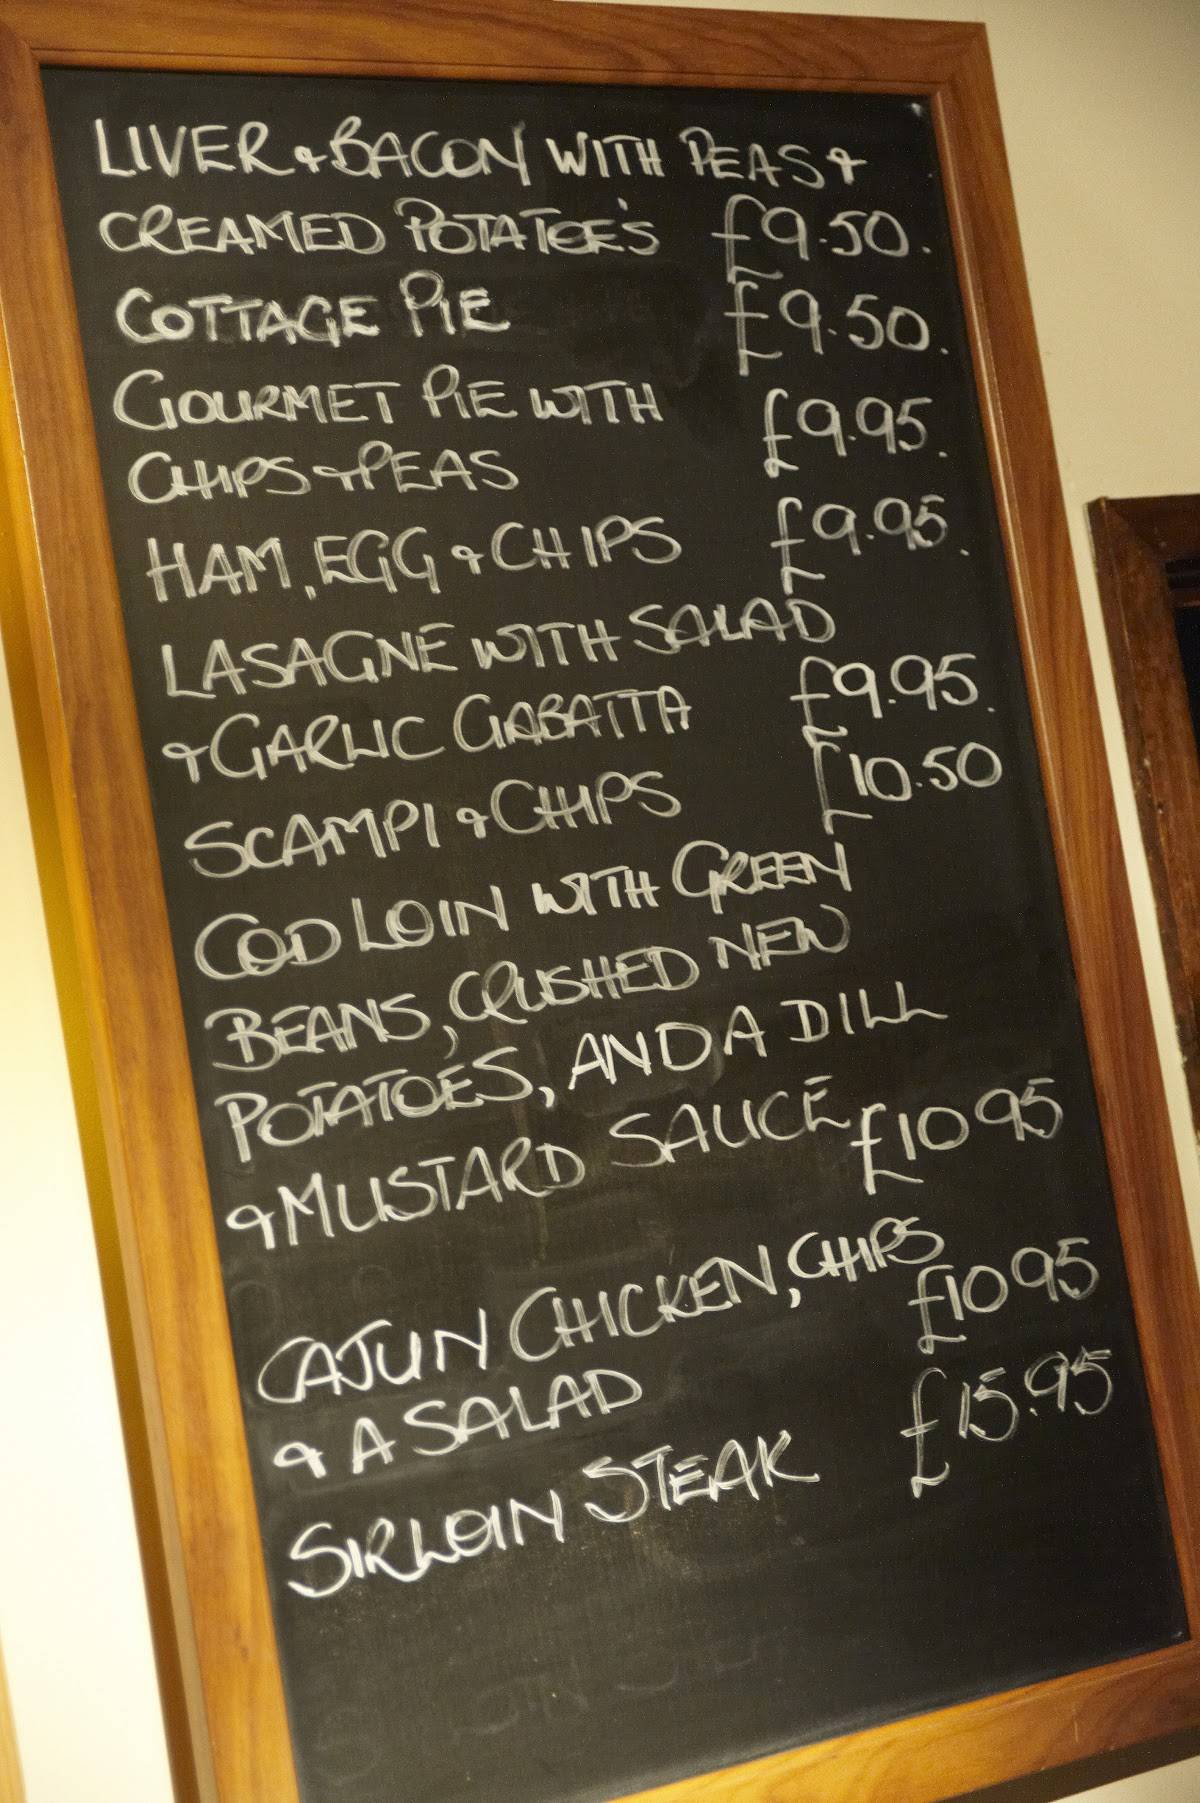 LIVER & BACON WITH PEAS &
CREAMED POTATOE'S £9.50.
COTTAGE PIE £9.50.
GOURMET PIE WITH £9.95.
CHIPS & PEAS
HAM, EGG & CHIPS £9.95.
LASAGNE WITH SALAD
& GARLIC CIABATTA £9.95.
SCAMPI & CHIPS £10.50
COD LOIN WITH GREEN
BEANS, CRUSHED NEW
POTATOES, AND A DILL
& MUSTARD SAUCE £10 95
CAJUN CHICKEN, CHIPS
& A SALAD £10 95
SIRLOIN STEAK £15.95